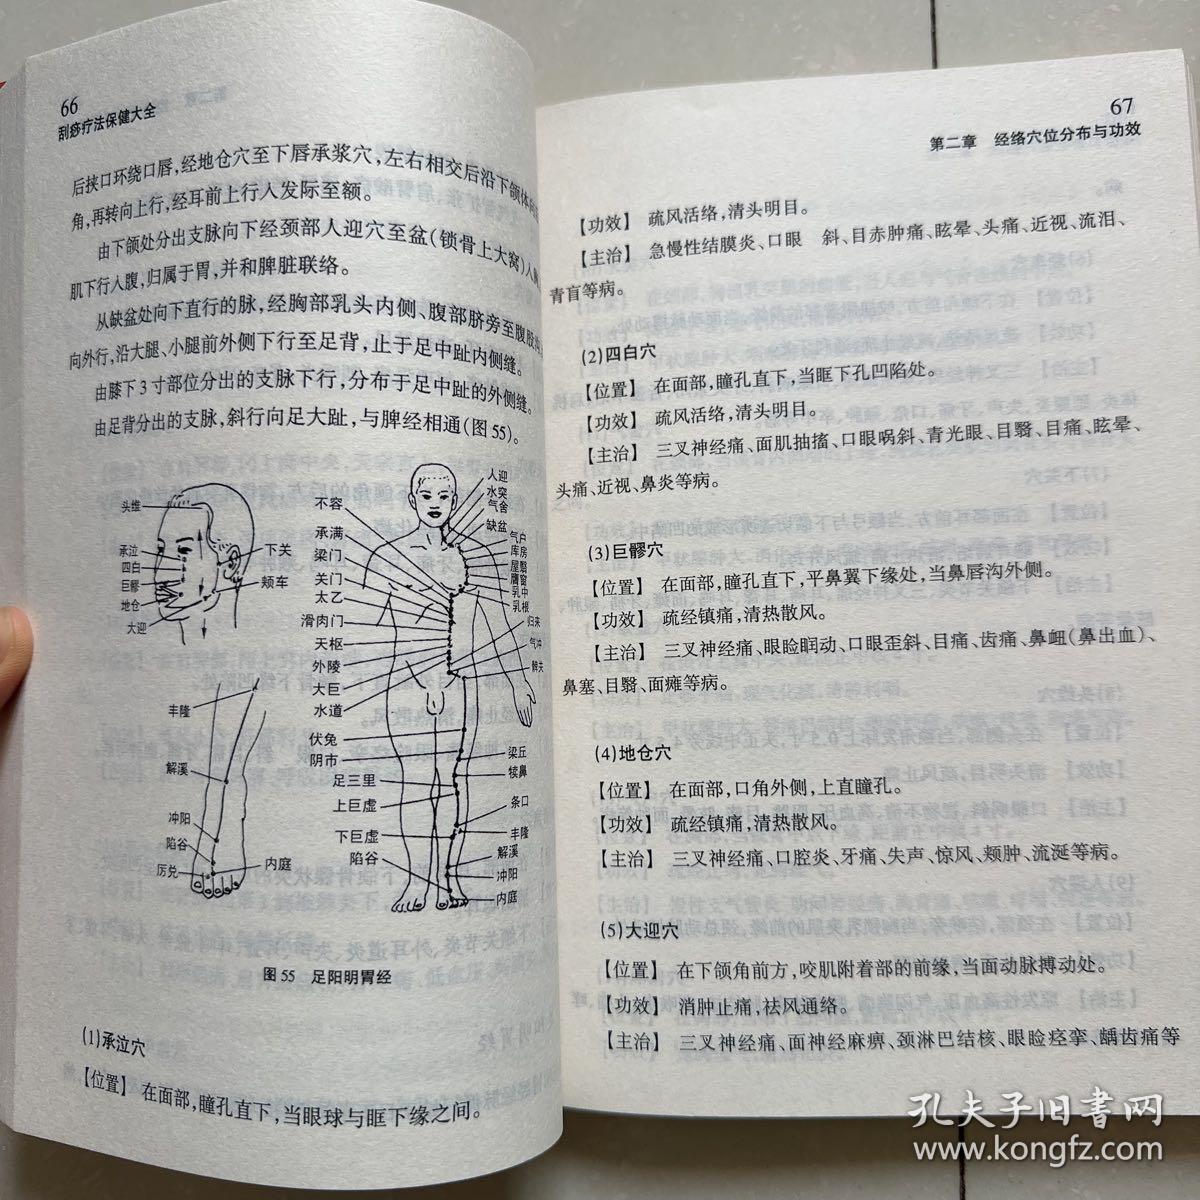 66
刮痧疗法保健大全
后挟口环绕口唇，经地仓穴至下唇承浆穴，左右相交后沿下颌体
角，再转向上行，经耳前上行入发际至额。
由下颌处分出支脉向下经颈部人迎穴至盆(锁骨上大窝)入
肌下行入腹，归属于胃，并和脾脏联络。
从缺盆处向下直行的脉，经胸部乳头内侧、腹部脐旁至腹股
向外行，沿大腿、小腿前外侧下行至足背，止于足中趾内侧缝。
由膝下3寸部位分出的支脉下行，分布于足中趾的外侧缝。
由足背分出的支脉，斜行向足大趾，与脾经相通(图55)。
头维
承泣
四白
巨髎
地仓
大迎
下关
颊车
丰隆
解溪
冲阳
陷谷
厉兑
内庭
不容
承满
梁门
关门
太乙
滑肉门
天枢
外陵
大巨
水道
伏兔
阴市
足三里
上巨虚
下巨虚
陷谷
人迎
水突
气舍
缺盆
气户
库房
屋翳
膺窗
乳中
乳根
归来
气冲
髀关
梁丘
犊鼻
条口
丰隆
解溪
冲阳
内庭
图 55 足阳明胃经
(1)承泣穴
【位置】 在面部，瞳孔直下，当眼球与眶下缘之间。
67
第二章 经络穴位分布与功效
【功效】 疏风活络，清头明目。
【主治】 急慢性结膜炎、口眼 斜、目赤肿痛、眩晕、头痛、近视、流泪、
青盲等病。
(2)四白穴
【位置】 在面部，瞳孔直下，当眶下孔凹陷处。
【功效】 疏风活络，清头明目。
【主治】 三叉神经痛、面肌抽搐、口眼㖞斜、青光眼、目翳、目痛、眩晕、
头痛、近视、鼻炎等病。
(3)巨髎穴
【位置】 在面部，瞳孔直下，平鼻翼下缘处，当鼻唇沟外侧。
【功效】 疏经镇痛，清热散风。
【主治】 三叉神经痛、眼睑瞤动、口眼歪斜、目痛、齿痛、鼻衄(鼻出血)、
鼻塞、目翳、面瘫等病。
(4)地仓穴
【位置】 在面部，口角外侧，上直瞳孔。
【功效】 疏经镇痛，清热散风。
【主治】 三叉神经痛、口腔炎、牙痛、失声、惊风、颊肿、流涎等病。
(5)大迎穴
【位置】 在下颌角前方，咬肌附着部的前缘，当面动脉搏动处。
【功效】 消肿止痛，祛风通络。
【主治】 三叉神经痛、面神经麻痹、颈淋巴结核、眼睑痉挛、龋齿痛等
孔夫子旧书网
www.kongfz.com